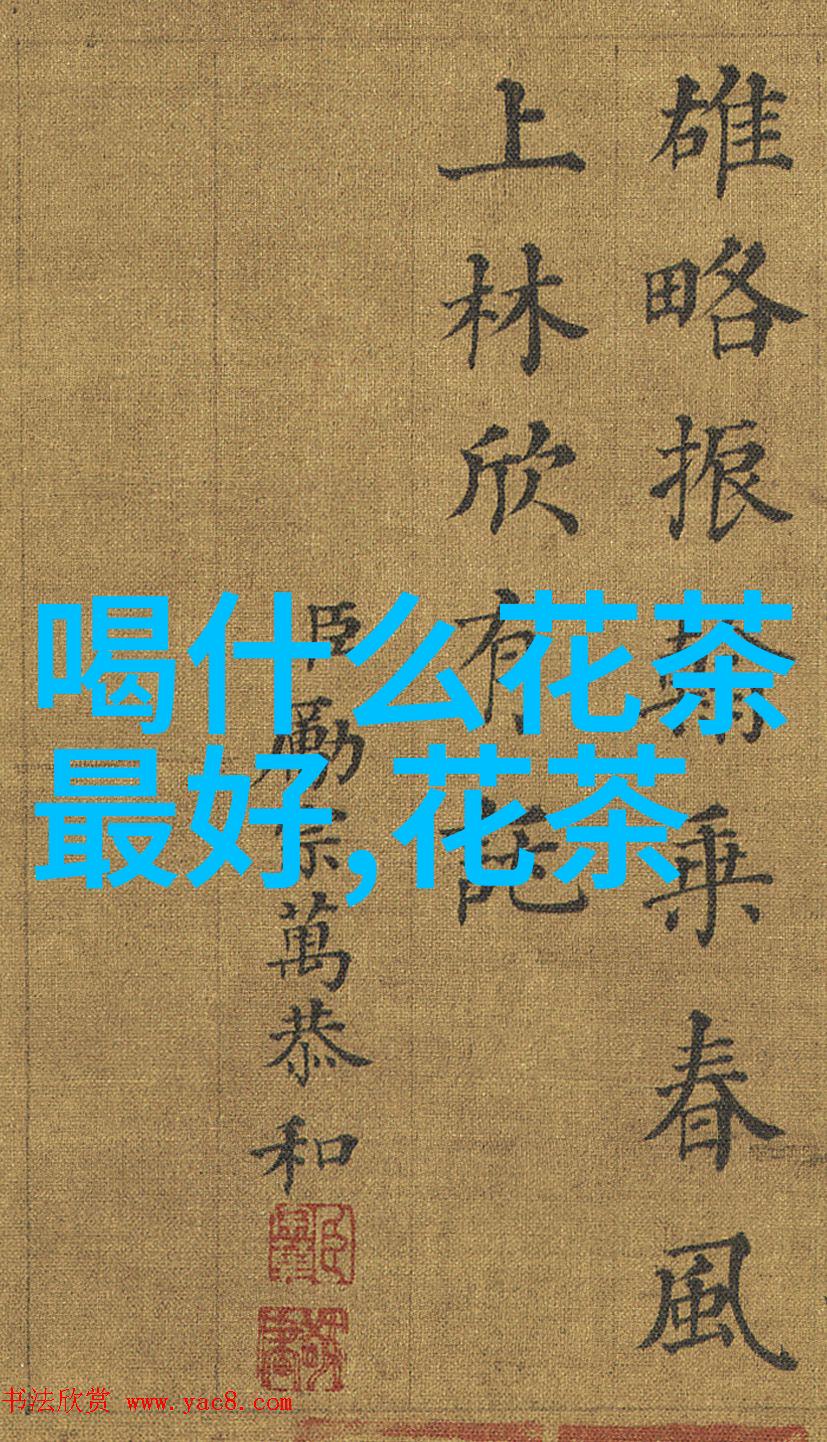 雄略振乘春風
上林欣有託
臣勵宗萬恭和
喝什么花茶
最好,花茶
书法欣赏 www.yac8.com